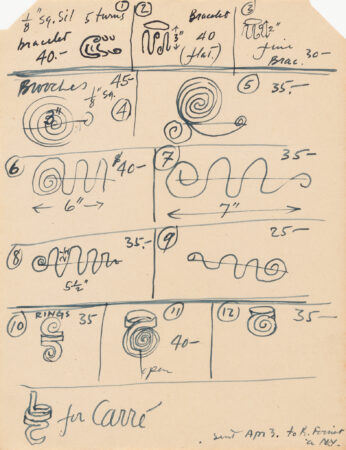 1/8" sq. Sil 5 turns ①
bracelet
40.-
② Bracelet
3" 40
(flat.)
③
2"
fine
Brac. 30-
Brooches 45-
1/8" sq.
3" ④
⑤ 35.-
⑥ $40-
6"
⑦ 35-
7"
⑧ 35.-
5½"
⑨ 25-
⑩ RINGS 35
⑪ 40-
open
⑫ 35-
for Carré
sent Apr 3. to
N.Y.